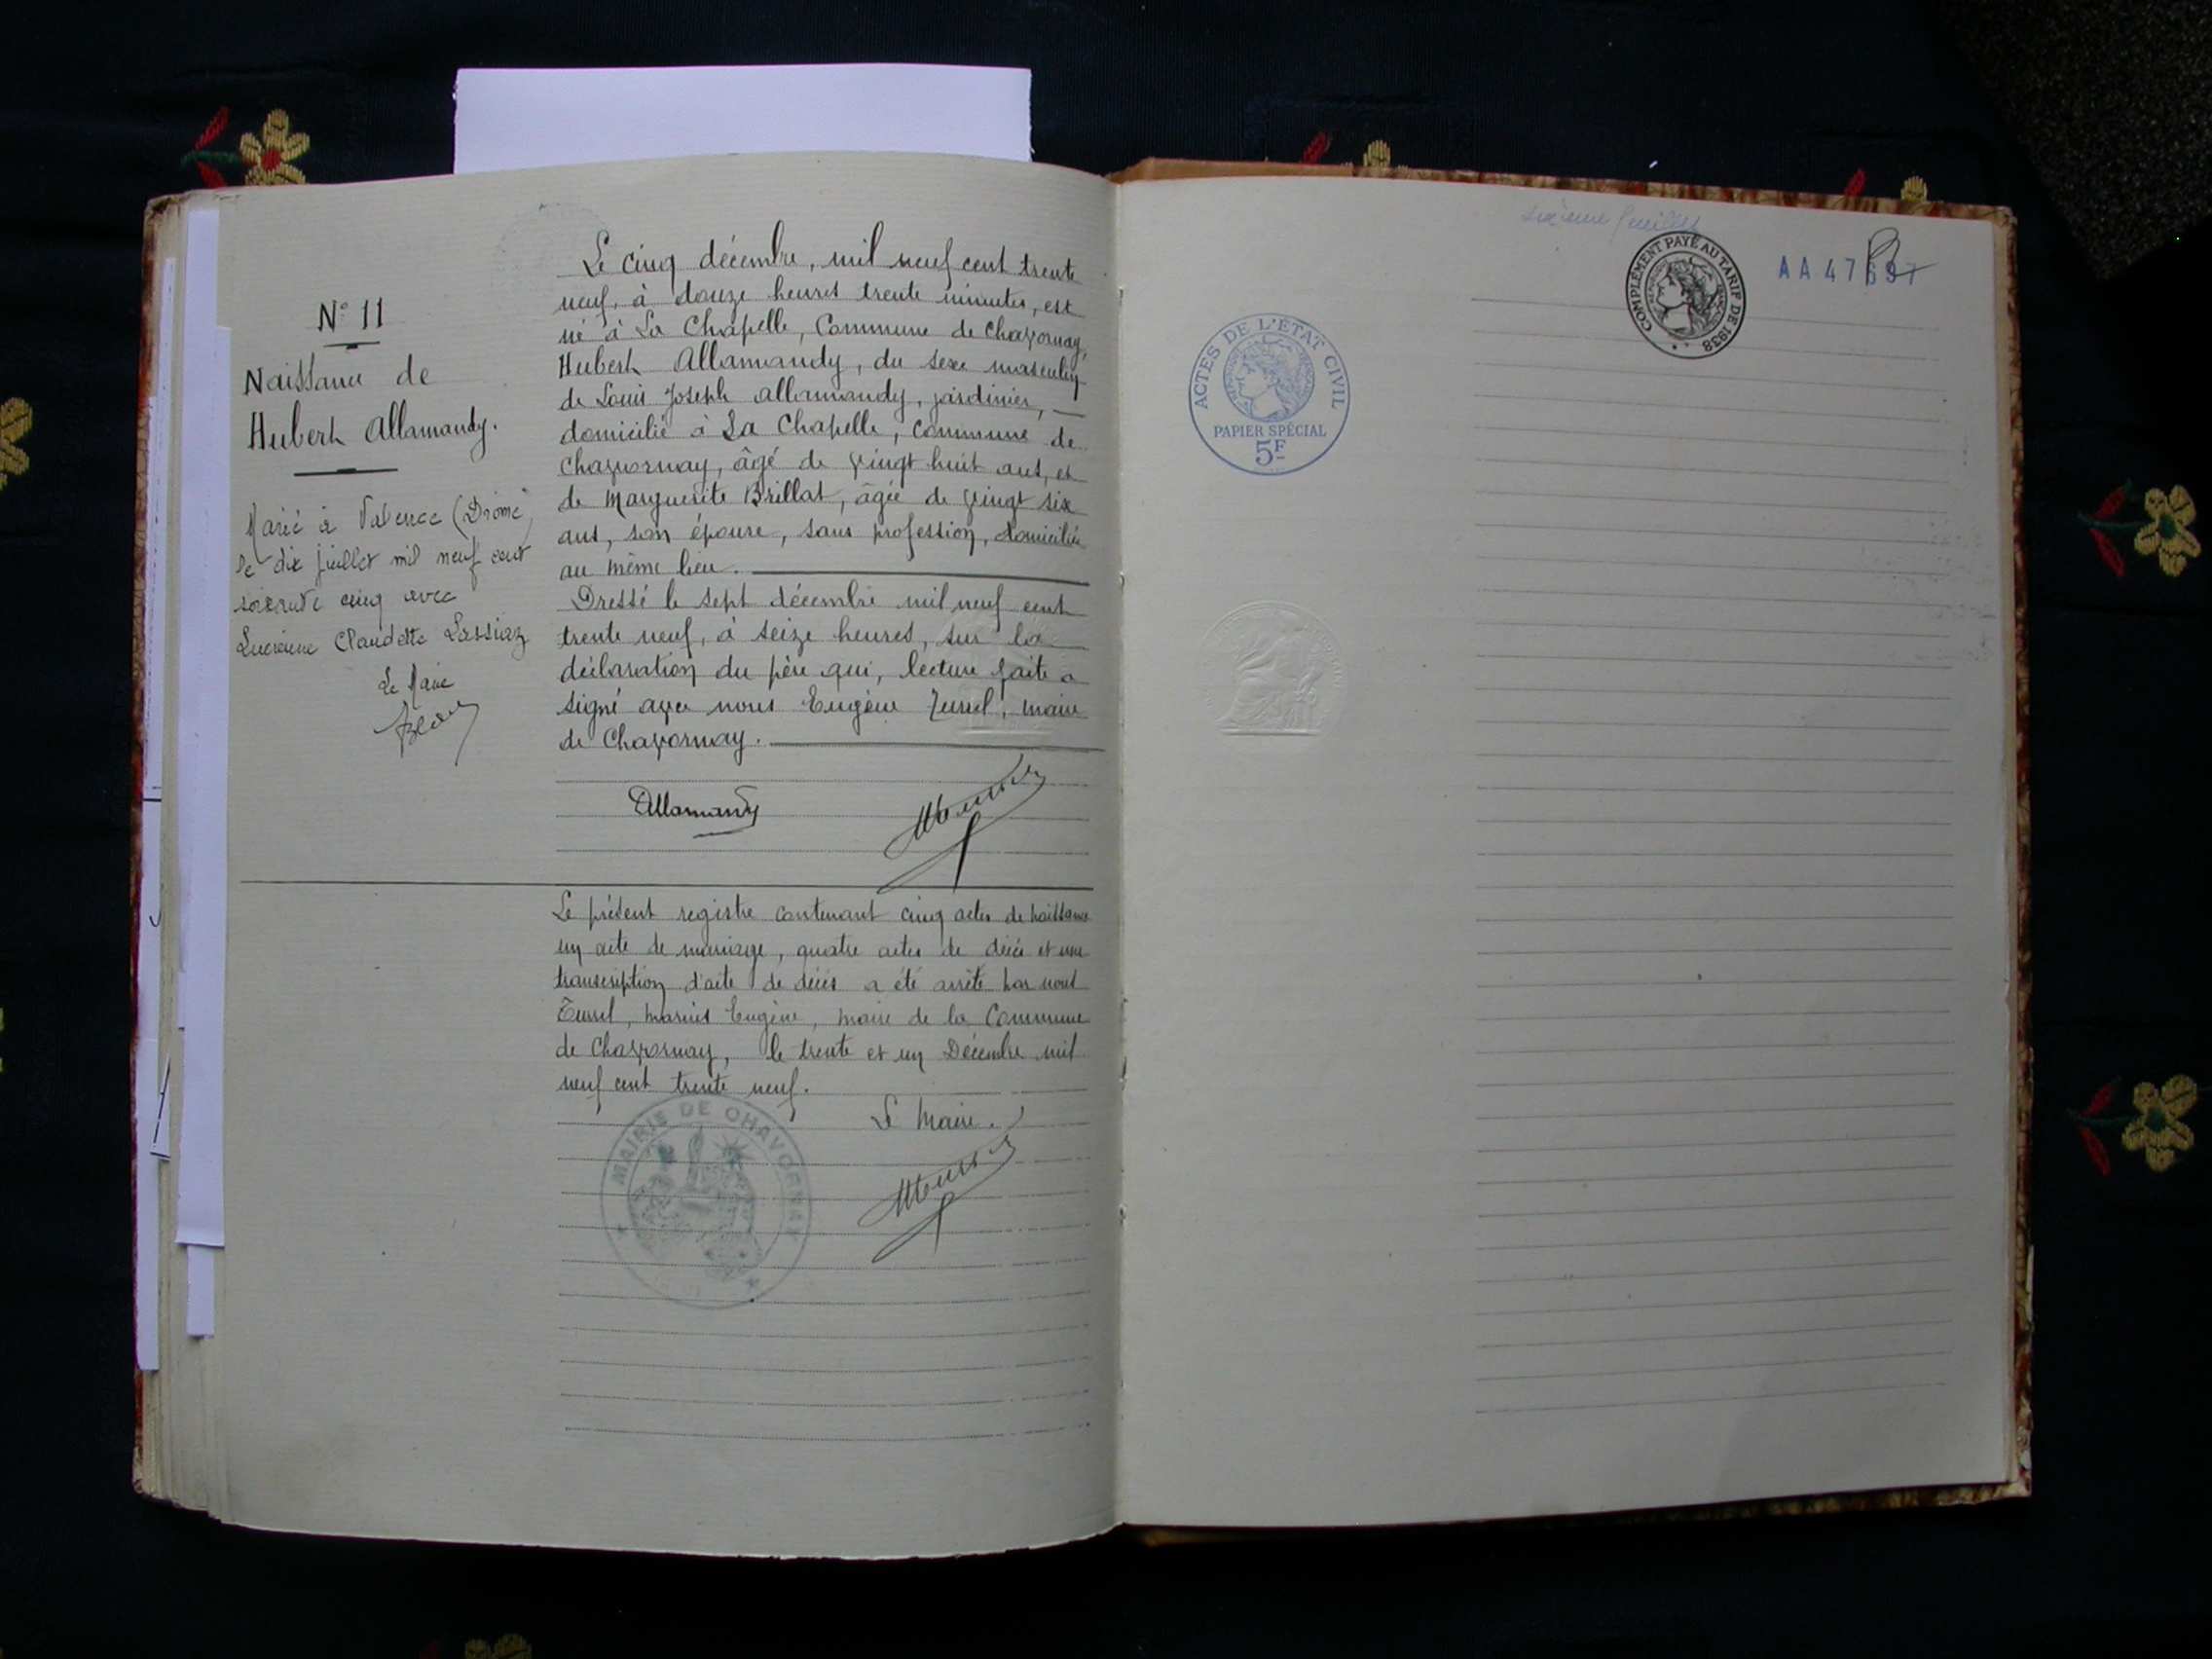 N° 11
Naissance de
Hubert Allamandy.
Marié à Valence (Drôme)
le dix juillet mil neuf cent
soixante cinq avec
Lucienne Claudette Lassiaz
Le Maire
Le cinq décembre, mil neuf cent trente
neuf, à douze heures trente minutes, est
né à La Chapelle, Commune de Chavornay,
Hubert Allamandy, du sexe masculin
de Louis Joseph Allamandy, jardinier,
domicilié à La Chapelle, Commune de
Chavornay, âgé de vingt huit ans, et
de Marguerite Brillat, âgée de vingt six
ans, son épouse, sans profession, domiciliée
au même lieu.
Dressé le sept décembre mil neuf cent
trente neuf, à seize heures, sur la
déclaration du père qui, lecture faite a
signé avec nous Eugène Turrel, maire
de Chavornay.
Allamandy
Le présent registre contenant cinq actes de naissance
un acte de mariage, quatre actes de décès et une
transcription d'acte de décès a été arrêté par nous
Turrel, Marius Eugène, maire de la Commune
de Chavornay, le trente et un Décembre mil
neuf cent trente neuf.
Le Maire.
MAIRIE DE CHAVORNAY
sixième feuillet
COMPLÉMENT PAYÉ AU TARIF DE 1938
AA 47
ACTES DE L'ÉTAT CIVIL
RÉPUBLIQUE FRANÇAISE
PAPIER SPÉCIAL
5F